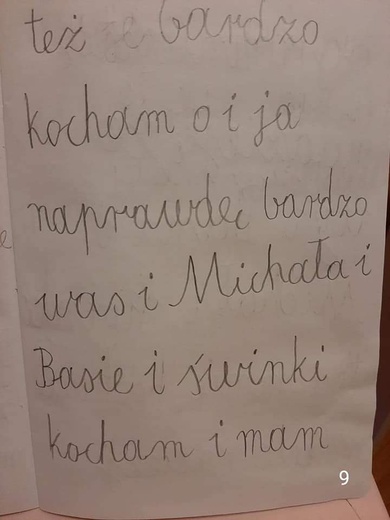 też bardzo
kocham o i ja
naprawdę bardzo
was i Michała i
Basie i świnki
kocham i mam
9